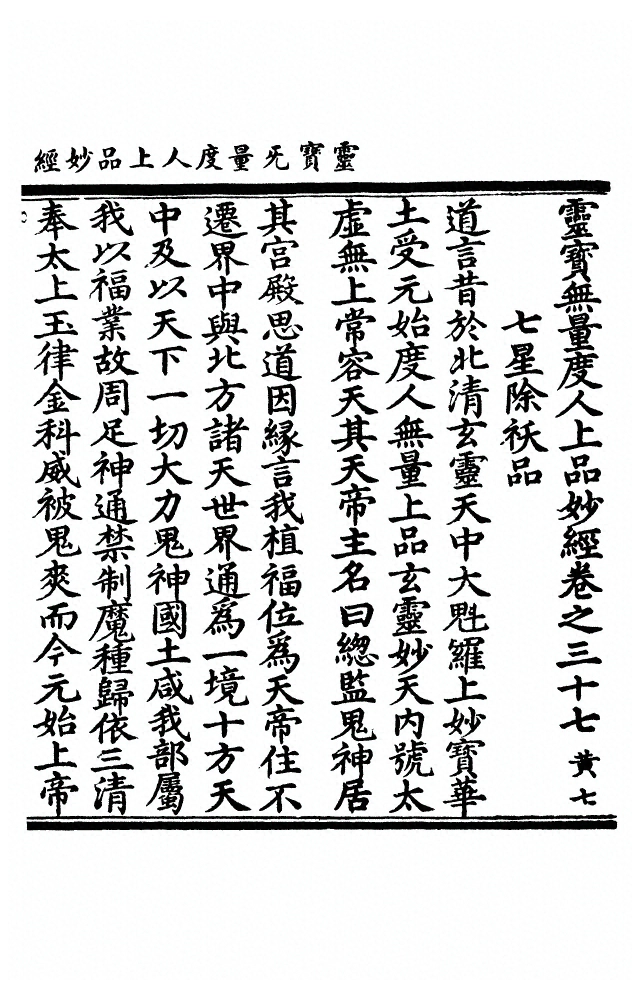 靈寶旡量度人上品妙經
靈寶無量度人上品妙經卷之三十七 黃七
七星除祅品
道言昔於北清玄靈天中大魁羅上妙寶華
土受元始度人無量上品玄靈妙天內號太
虛無上常容天其天帝主名曰緫監鬼神居
其宮殿思道因緣言我植福位爲天帝住不
遷界中與北方諸天世界通爲一境十方天
中及以天下一切大力鬼神國土咸我部屬
我以福業故周足神通禁制魔種歸依三清
奉太上玉律金科威被鬼爽而今元始上帝